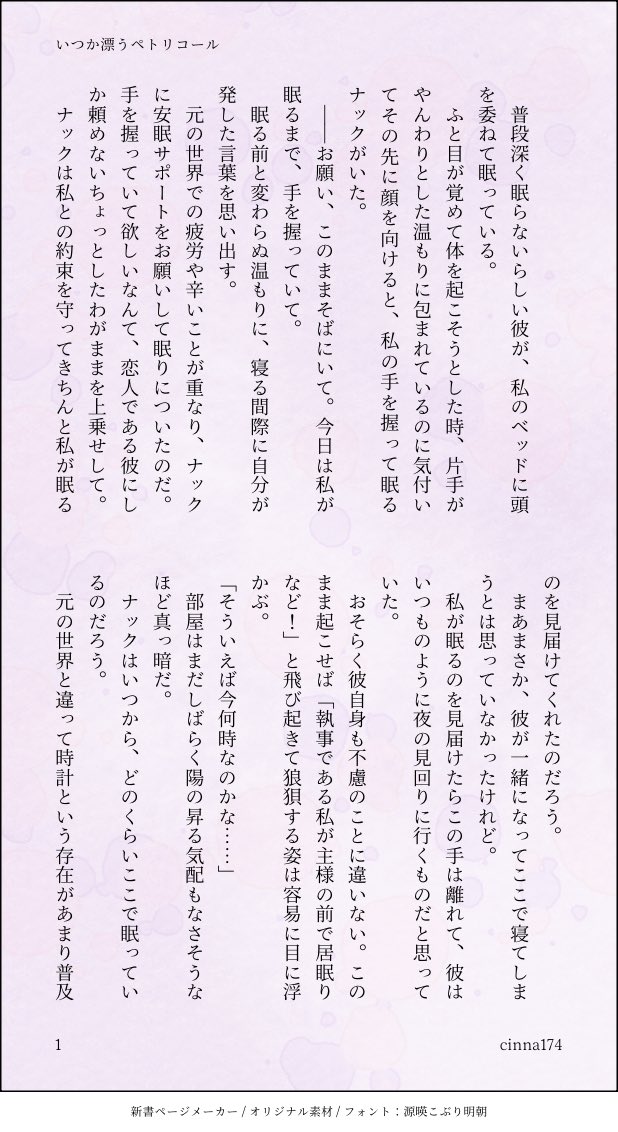 いつか漂うペトリコール
　普段深く眠らないらしい彼が、私のベッドに頭
を委ねて眠っている。
　ふと目が覚めて体を起こそうとした時、片手が
やんわりとした温もりに包まれているのに気付い
てその先に顔を向けると、私の手を握って眠る
ナックがいた。
　――お願い、このままそばにいて。今日は私が
眠るまで、手を握っていて。
　眠る前と変わらぬ温もりに、寝る間際に自分が
発した言葉を思い出す。
　元の世界での疲労や辛いことが重なり、ナック
に安眠サポートをお願いして眠りについたのだ。
手を握っていて欲しいなんて、恋人である彼にし
か頼めないちょっとしたわがままを上乗せして。
　ナックは私との約束を守ってきちんと私が眠る
のを見届けてくれたのだろう。
　まあまさか、彼が一緒になってここで寝てしま
うとは思っていなかったけれど。
　私が眠るのを見届けたらこの手は離れて、彼は
いつものように夜の見回りに行くものだと思って
いた。
　おそらく彼自身も不慮のことに違いない。この
まま起こせば「執事である私が主様の前で居眠り
など！」と飛び起きて狼狽する姿は容易に目に浮
かぶ。
「そういえば今何時なのかな……」
　部屋はまだしばらく陽の昇る気配もなさそうな
ほど真っ暗だ。
　ナックはいつから、どのくらいここで眠ってい
るのだろう。
　元の世界と違って時計という存在があまり普及
1
cinna174
新書ページメーカー / オリジナル素材 / フォント：源暎こぶり明朝